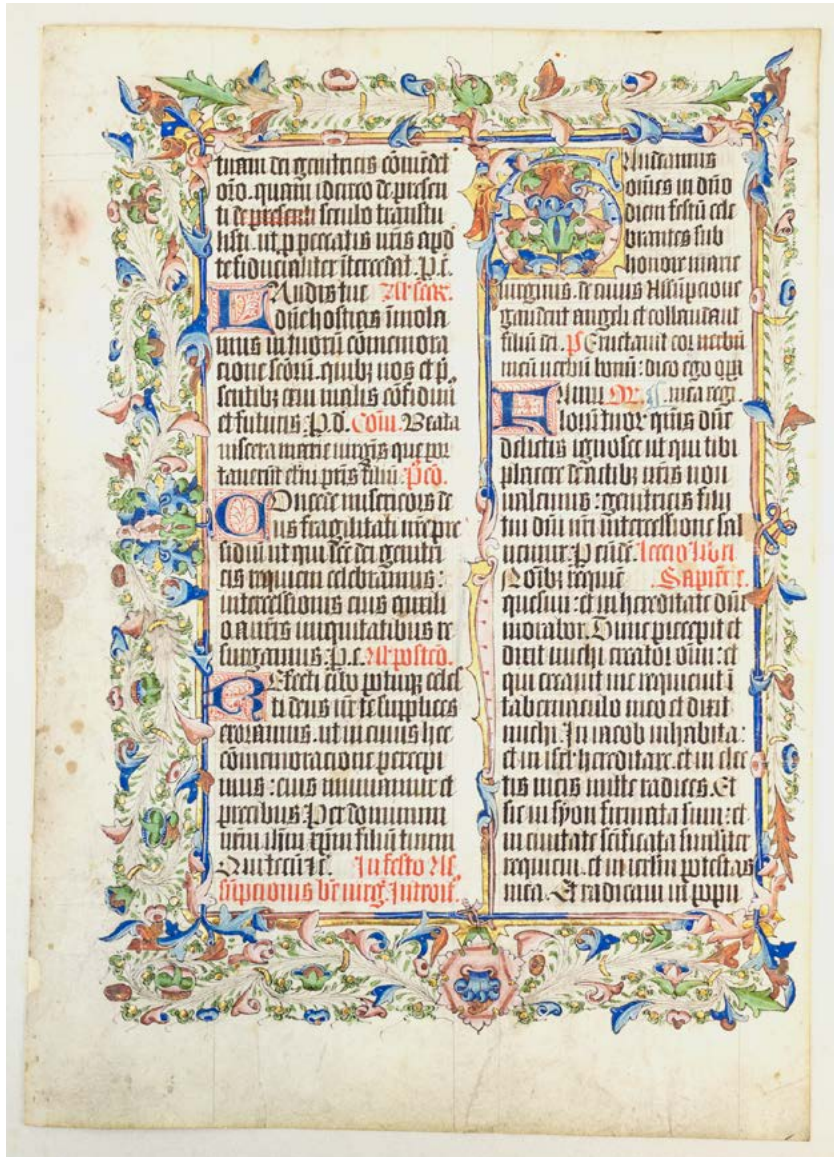 tuam dei genitricis cōmēdet
orō. quam idcirco de presen
ti de presenti seculo transtu
listi. ut p peccatis nr̄is apd
te fiducialiter ītercedat. P.e.
Laudis tue Al secr̄.
dōne hostias īmola
mus in tuorū cōmemora
cione scōrū. quibꝫ nos et p̄
sentibꝫ exui malis cōfidim
et futuris. P.d. Cōm. Beata
viscera marie virgīs que por
tauerūt et̄ni pr̄is filiū. P̄co.
Concede misericors de
us fragilitati nr̄e pre
sidiū ut qui scē dei genitri
cis requiem celebramus:
intercessionis eius auxili
o a nr̄is iniquitatibus re
surgamus. P.e. Al postcō.
Refecti cibo potuqꝫ celes
ti deus nr̄ te supplices
exoramus. ut in cuius hec
cōmemoracione percepi
mus: eius muniamur et
precibus. Per dominum
nr̄m ihm xp̄m filiū tuum
Qui tecū In festo As
sūpcionis be virg. Introit.
Gaudeamus
om̄es in dn̄o
diem festū cele
brantes sub
honore marie
virginis. de cuius Assūpcione
gaudent angeli et collaudant
filiū dei. ps Eructauit cor verbū
meū verbū bonū: dico ego opa
mea regi.
Famulor tuor qūs dn̄e
delictis ignosce ut qui tibi
placere de actibꝫ nr̄is non
valemus: genitricis filij
tui dn̄i nr̄i intercessione sal
uemur. P eūdē. leccio libri
In oībꝫ requiē Sapiēcie.
quesiui: et in hereditate dn̄i
morabor. Tunc precepit et
dixit michi creator oīm: et
qui creauit me requieuit ī
tabernaculo meo et dixit
michi. In iacob inhabita:
et in isrl hereditare. et in elec
tis meis mitte radices. Et
sic in syon firmata sum: et
in ciuitate scificata similiter
requieui. et in ierlm potestas
mea. Et radicaui in popu